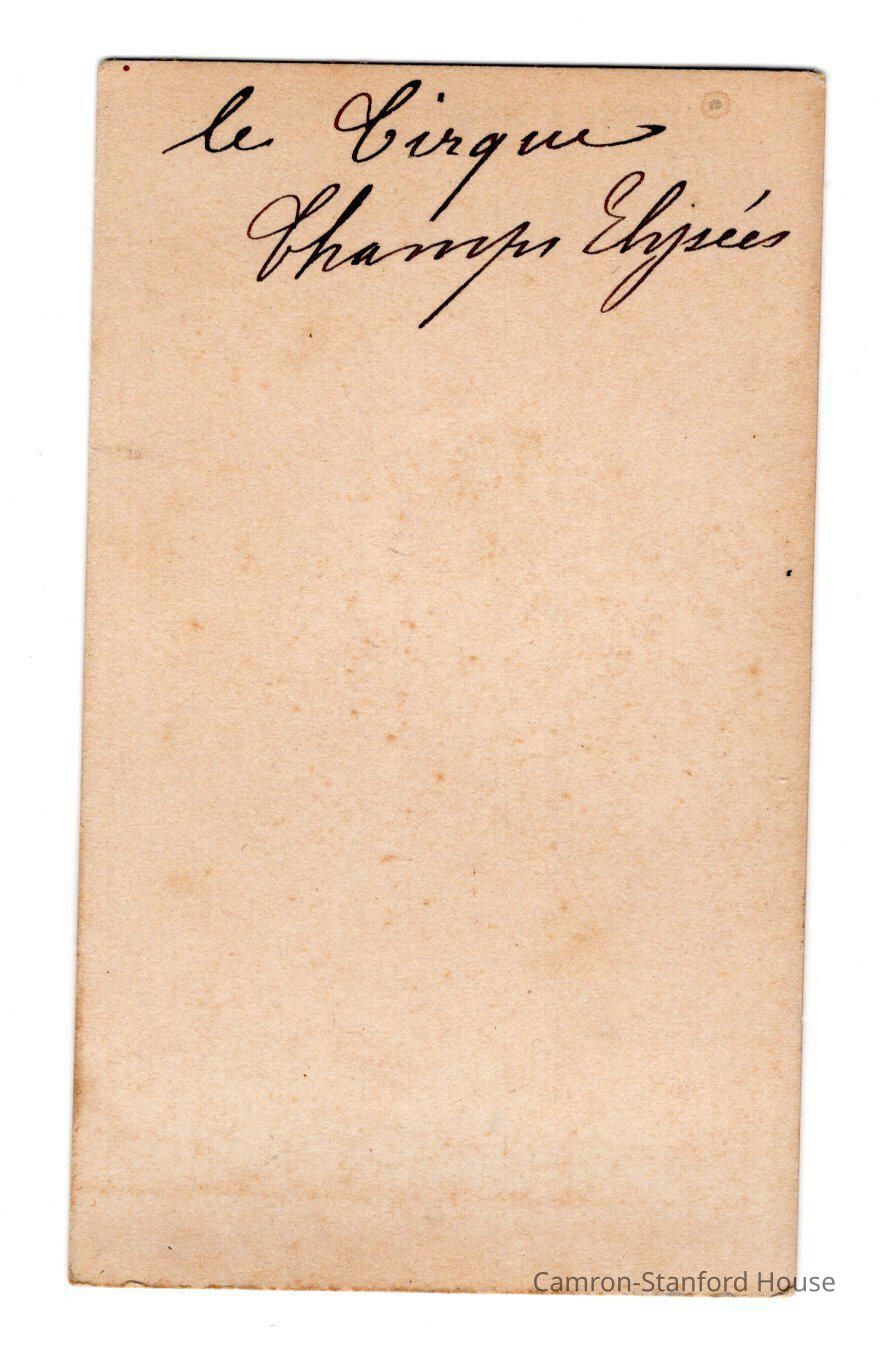 le Cirque
Champs Elysées
Camron-Stanford House